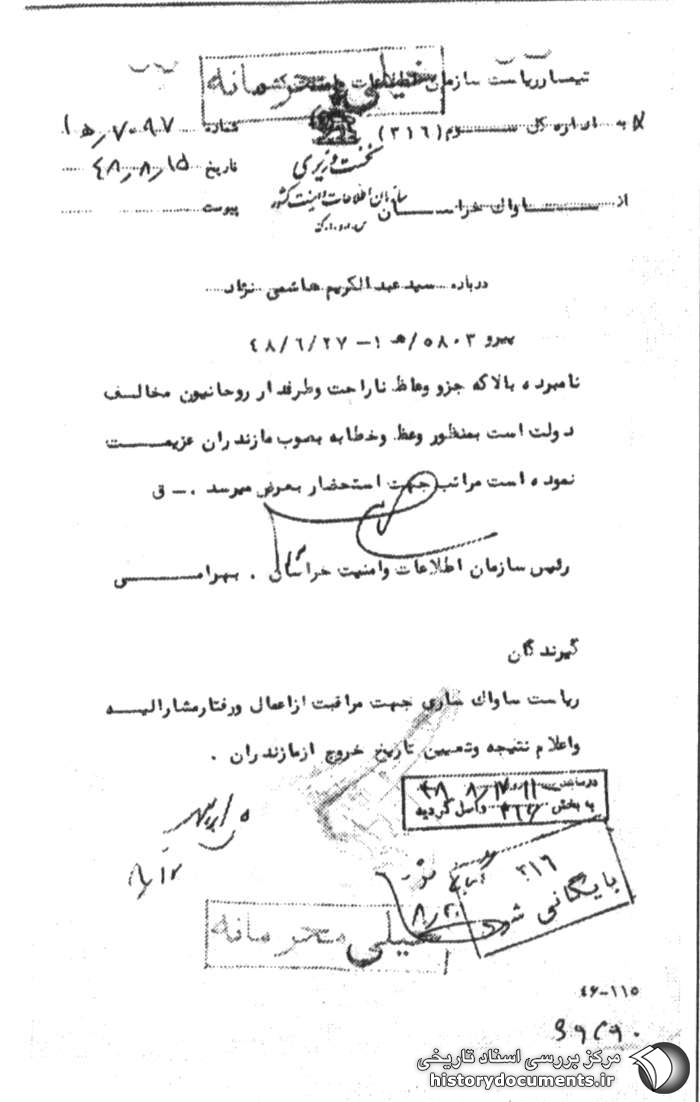 خیلی محرمانه
تیمسار ریاست سازمان اطلاعات و امنیت کشور
به اداره کل سوم (۳۱۶)
شماره ۷۰۹۷/ه‍ ۱
نخست وزیری
تاریخ ۴۸/۸/۱۵
سازمان اطلاعات و امنیت کشور
س.ا.و.ا.ک
از ساواک خراسان
پیوست
درباره سید عبدالکریم هاشمی نژاد
پیرو ۵۸۰۳/ه‍ ۱ – ۴۸/۶/۲۷
نامبرده بالا که جزو وعاظ ناراحت و طرفدار روحانیون مخالف
دولت است بمنظور وعظ و خطابه بصوب مازندران عزیمت
نموده است مراتب جهت استحضار بعرض میرسد . – ق
رئیس سازمان اطلاعات و امنیت خراسان . بهرامی
گیرندگان
ریاست ساواک ساری جهت مراقبت از اعمال و رفتار مشارالیه
و اعلام نتیجه و تعیین تاریخ خروج از مازندران .
در ساعت
به بخش ۳۱۶ واصل گردید
۸/۱۲
۳۱۶
بایگانی شود
۸/۲۰
خیلی محرمانه
۴۶-۱۱۵
مرکز بررسی اسناد تاریخی
historydocuments.ir